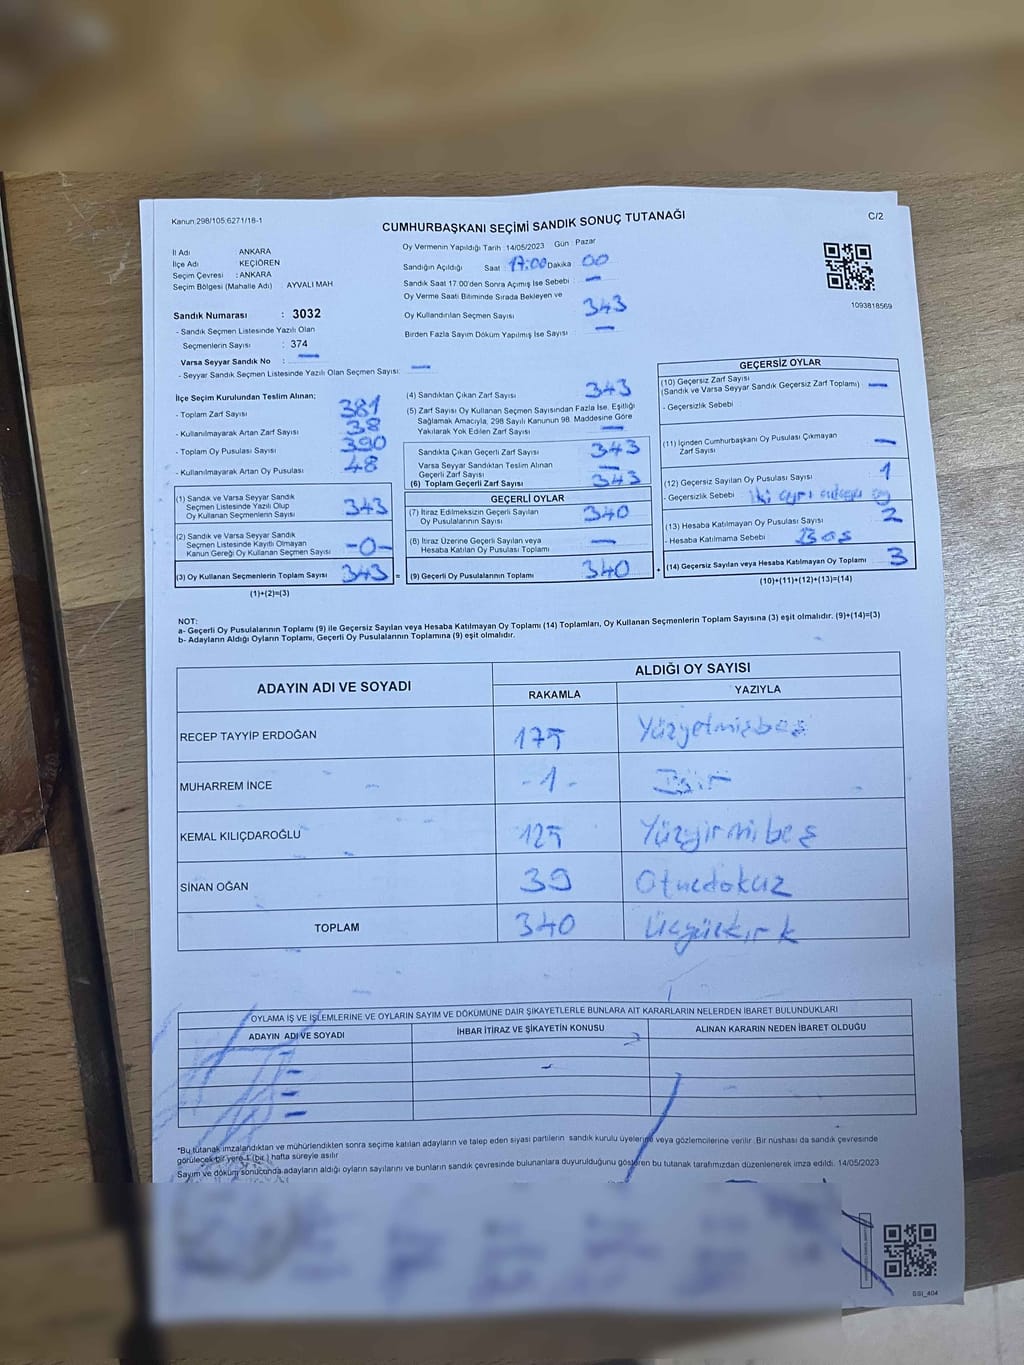 Kanun.298/105.6271/18-1
CUMHURBAŞKANI SEÇİMİ SANDIK SONUÇ TUTANAĞI
C/2
İl Adı ANKARA
İlçe Adı KEÇİÖREN
Seçim Çevresi : ANKARA
Seçim Bölgesi (Mahalle Adı) : AYVALI MAH
Oy Vermenin Yapıldığı Tarih :14/05/2023 Gün : Pazar
Sandığın Açıldığı Saat : 17:00 Dakika 00
Sandık Saat 17.00'den Sonra Açılmış İse Sebebi : —
Oy Verme Saati Bitiminde Sırada Bekleyen ve
Oy Kullandırılan Seçmen Sayısı : 343
Birden Fazla Sayım Döküm Yapılmış İse Sayısı —
1093818569
Sandık Numarası : 3032
- Sandık Seçmen Listesinde Yazılı Olan
Seçmenlerin Sayısı : 374
Varsa Seyyar Sandık No : —
- Seyyar Sandık Seçmen Listesinde Yazılı Olan Seçmen Sayısı: —
İlçe Seçim Kurulundan Teslim Alınan;
- Toplam Zarf Sayısı : 381
- Kullanılmayarak Artan Zarf Sayısı : 38
- Toplam Oy Pusulası Sayısı : 390
- Kullanılmayarak Artan Oy Pusulası : 48
(1) Sandık ve Varsa Seyyar Sandık
Seçmen Listesinde Yazılı Olup
Oy Kullanan Seçmenlerin Sayısı : 343
(2) Sandık ve Varsa Seyyar Sandık
Seçmen Listesinde Kayıtlı Olmayan
Kanun Gereği Oy Kullanan Seçmen Sayısı : -0-
(3) Oy Kullanan Seçmenlerin Toplam Sayısı : 343 =
(1)+(2)=(3)
(4) Sandıktan Çıkan Zarf Sayısı : 343
(5) Zarf Sayısı Oy Kullanan Seçmen Sayısından Fazla İse, Eşitliği
Sağlamak Amacıyla; 298 Sayılı Kanunun 98. Maddesine Göre
Yakılarak Yok Edilen Zarf Sayısı : —
Sandıkta Çıkan Geçerli Zarf Sayısı : 343
Varsa Seyyar Sandıktan Teslim Alınan
Geçerli Zarf Sayısı : —
(6) Toplam Geçerli Zarf Sayısı : 343
GEÇERLİ OYLAR
(7) İtiraz Edilmeksizin Geçerli Sayılan
Oy Pusulalarının Sayısı : 340
(8) İtiraz Üzerine Geçerli Sayılan veya
Hesaba Katılan Oy Pusulası Toplamı : —
(9) Geçerli Oy Pusulalarının Toplamı : 340 +
GEÇERSİZ OYLAR
(10) Geçersiz Zarf Sayısı
(Sandık ve Varsa Seyyar Sandık Geçersiz Zarf Toplamı) : —
- Geçersizlik Sebebi
(11) İçinden Cumhurbaşkanı Oy Pusulası Çıkmayan
Zarf Sayısı : —
(12) Geçersiz Sayılan Oy Pusulası Sayısı : 1
- Geçersizlik Sebebi : iki ayrı oy
(13) Hesaba Katılmayan Oy Pusulası Sayısı : 2
- Hesaba Katılmama Sebebi : Boş
(14) Geçersiz Sayılan veya Hesaba Katılmayan Oy Toplamı : 3
(10)+(11)+(12)+(13)=(14)
NOT:
a- Geçerli Oy Pusulalarının Toplamı (9) ile Geçersiz Sayılan veya Hesaba Katılmayan Oy Toplamı (14) Toplamları, Oy Kullanan Seçmenlerin Toplam Sayısına (3) eşit olmalıdır. (9)+(14)=(3)
b- Adayların Aldığı Oyların Toplamı, Geçerli Oy Pusulalarının Toplamına (9) eşit olmalıdır.
ADAYIN ADI VE SOYADI ALDIĞI OY SAYISI
RAKAMLA YAZIYLA
RECEP TAYYİP ERDOĞAN 175 Yüzyetmişbeş
MUHARREM İNCE -1- Bir
KEMAL KILIÇDAROĞLU 125 Yüzyirmibeş
SİNAN OĞAN 39 Otuzdokuz
TOPLAM 340 Üçyüzkırk
OYLAMA İŞ VE İŞLEMLERİNE VE OYLARIN SAYIM VE DÖKÜMÜNE DAİR ŞİKAYETLERLE BUNLARA AİT KARARLARIN NELERDEN İBARET BULUNDUKLARI
ADAYIN ADI VE SOYADI İHBAR İTİRAZ VE ŞİKAYETİN KONUSU ALINAN KARARIN NEDEN İBARET OLDUĞU
*Bu tutanak imzalandıktan ve mühürlendikten sonra seçime katılan adayların ve talep eden siyasi partilerin sandık kurulu üyelerine veya gözlemcilerine verilir. Bir nüshası da sandık çevresinde
görülecek bir yere 1 (bir ) hafta süreyle asılır
Sayım ve döküm sonucunda adayların aldığı oyların sayılarını ve bunların sandık çevresinde bulunanlara duyurulduğunu gösteren bu tutanak tarafımızdan düzenlenerek imza edildi. 14/05/2023
SSI_404